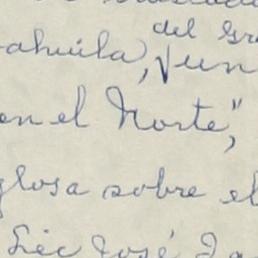 del Gr
ahuila, "un
en el Norte",
glosa sobre el
Lic José